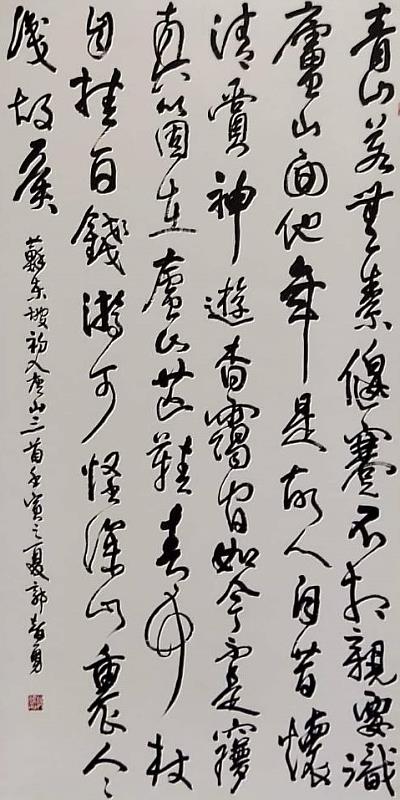 青山若無素偃蹇不相親要識
廬山面他年是故人自昔懷
清賞神遊杳靄間如今不是夢
真箇在廬山芒鞋青竹杖
自挂百錢游可怪深山裏人人
識故侯
蘇東坡初入廬山三首壬寅之夏郭勇